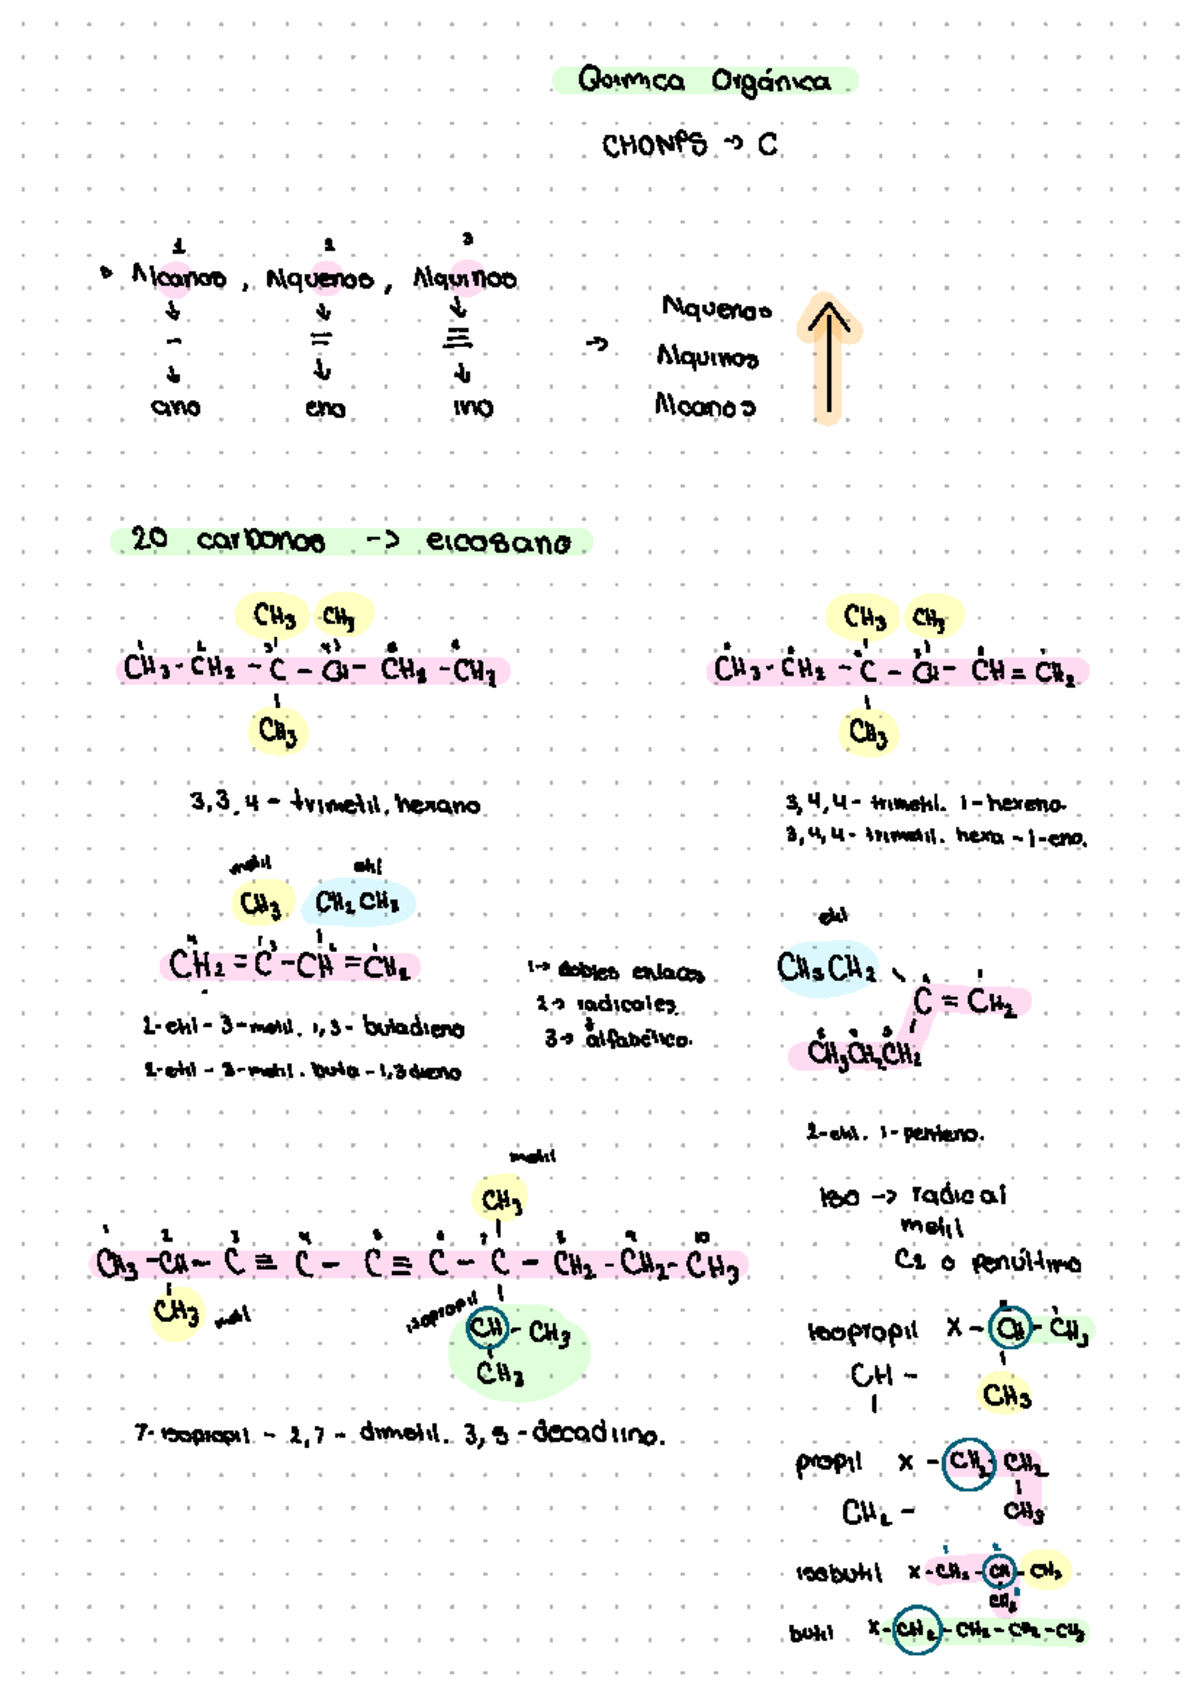 Química Orgánica
CHONPS → C
1 2 3
Alcanos, Alquenos, Alquinos
↓ ↓ ↓
- = ≡
↓ ↓ ↓
ano eno ino
→ Alquenos
Alquinos
Alcanos
20 carbonos -> eicosano
CH3 CH3
1 2 3 4 5 6
CH3 - CH2 - C - CH - CH2 - CH3
CH3
3,3,4 - trimetil. hexano
CH3 CH3
6 5 4 3 2 1
CH3 - CH2 - C - CH - CH = CH2
CH3
3,4,4 - trimetil. 1-hexeno.
3,4,4 - trimetil. hexa -1-eno.
metil etil
CH3 CH2 CH3
4 3 2 1
CH2 = C - CH = CH2
2-etil - 3-metil. 1,3 - butadieno
2-etil - 3-metil. buta - 1,3 dieno
1-> dobles enlaces
2-> radicales.
3-> alfabético.
etil
CH3 CH2
2 1
C = CH2
5 4 3
CH3CH2CH2
2-etil. 1-penteno.
metil
CH3
1 2 3 4 5 6 7 8 9 10
CH3 - CH - C ≡ C - C ≡ C - C - CH2 - CH2 - CH3
CH3 metil
isopropil CH - CH3
CH3
7-isopropil - 2,7 - dimetil. 3,5 - decadiino.
iso -> radical
metil
C2 o penúltimo
isopropil X - CH - CH3
CH - CH3
propil X - CH2 CH2
CH2 - CH3
isobutil X - CH2 - CH - CH3
CH3
butil X - CH2 - CH2 - CH2 - CH3